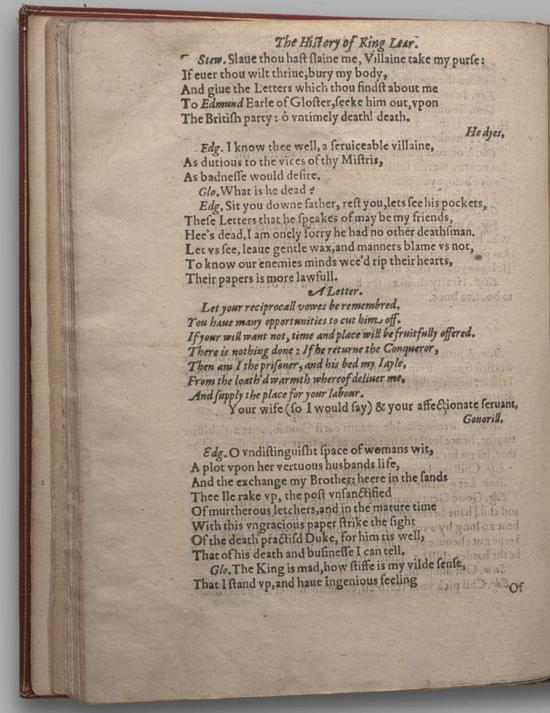 The History of King Lear.
Stew. Slaue thou hast slaine me, Villaine take my purse:
If euer thou wilt thriue, bury my body,
And giue the Letters which thou findst about me
To Edmund Earle of Gloster, seeke him out, vpon
The British party: ô vntimely death! death.
He dyes.
Edg. I know thee well, a seruiceable villaine,
As dutious to the vices of thy Mistris,
As badnesse would desire.
Glo. What is he dead?
Edg. Sit you downe father, rest you, lets see his pockets,
These Letters that he speakes of may be my friends,
Hee's dead, I am onely sorry he had no other deathsman.
Let vs see, leaue gentle wax, and manners blame vs not,
To know our enemies minds wee'd rip their hearts,
Their papers is more lawfull.
A Letter.
Let your reciprocall vowes be remembred,
You haue many opportunities to cut him off.
If your will want not, time and place will be fruitfully offered.
There is nothing done: If he returne the Conqueror,
Then am I the prisoner, and his bed my Iayle,
From the loath'd warmth whereof deliuer me,
And supply the place for your labour.
Your wife (so I would say) & your affectionate seruant,
Gonorill.
Edg. O vndistinguisht space of womans wit,
A plot vpon her vertuous husbands life,
And the exchange my Brother: heere in the sands
Thee Ile rake vp, the post vnsanctified
Of murtherous letchers, and in the mature time
With this vngracious paper strike the sight
Of the death practisd Duke, for him tis well,
That of his death and businesse I can tell.
Glo. The King is mad, how stiffe is my vilde sense,
That I stand vp, and haue ingenious feeling
Of